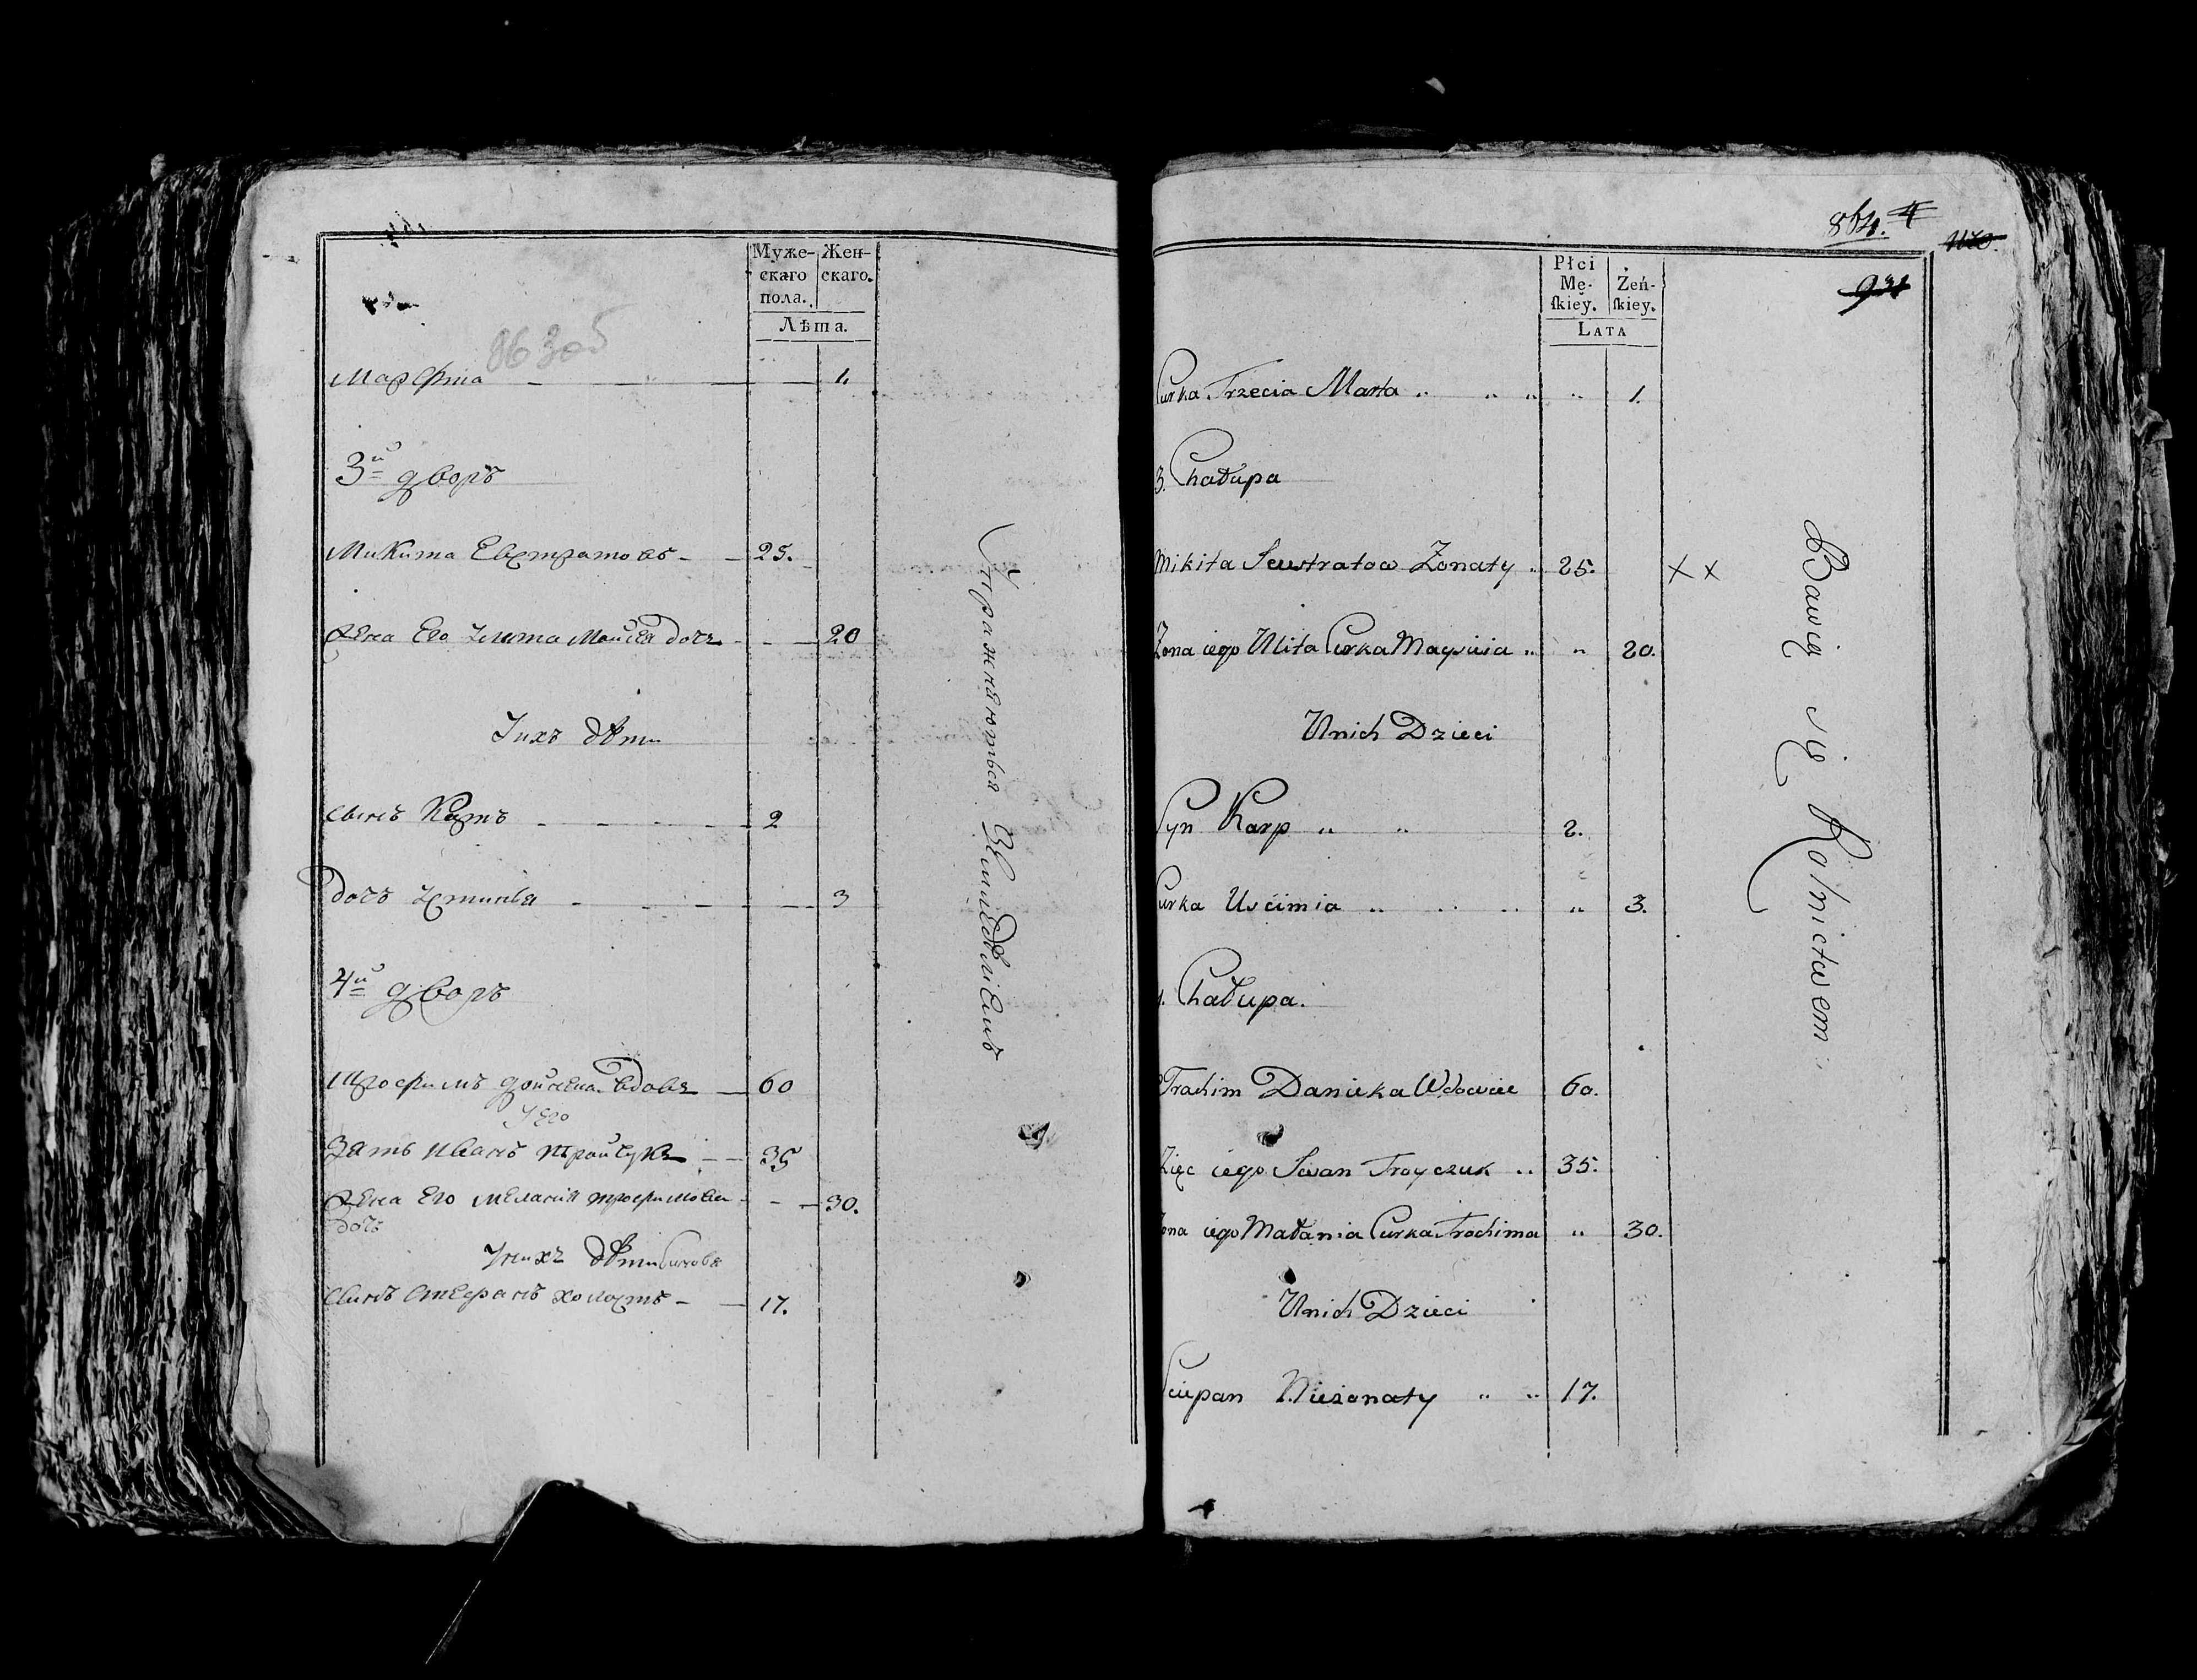 Муже-
скаго
пола.
Жен-
скаго.
Лѣта.
863 об
Марфта 1.
3й дворъ
Микита Евстратовъ 25.
Жена Его Улита Мойсея дочь 20
У нихъ дѣти
Сынъ Карпъ 2
дочь Устинья 3
4й дворъ
Трофимъ вдовъ 60
У Его
Зять Иванъ Тройчукъ 35
Жена Его Мелания Трофимова 30.
дочь
У нихъ дѣти
Сынъ Стефанъ холостъ 17.
Упражняються Землѣделіемъ
864.
931
Płci
Mę-
ſkiey.
Żeń-
ſkiey.
LATA
Curka Trzecia Marta 1.
3. Chałupa
Mikita Jewstratow Żonaty 25. x x
Żona iego Ulita Curka Maysieia 20.
Unich Dzieci
Syn Karp 2.
Curka Uscimia 3.
4. Chałupa.
Trochim Danieka Wdowiec 60.
Zięc iego Iwan Troyczuk 35.
Żona iego Małania Curka Trochima 30.
Unich Dzieci
Sciepan Nieżonaty 17.
Bawią się Rolnictwem